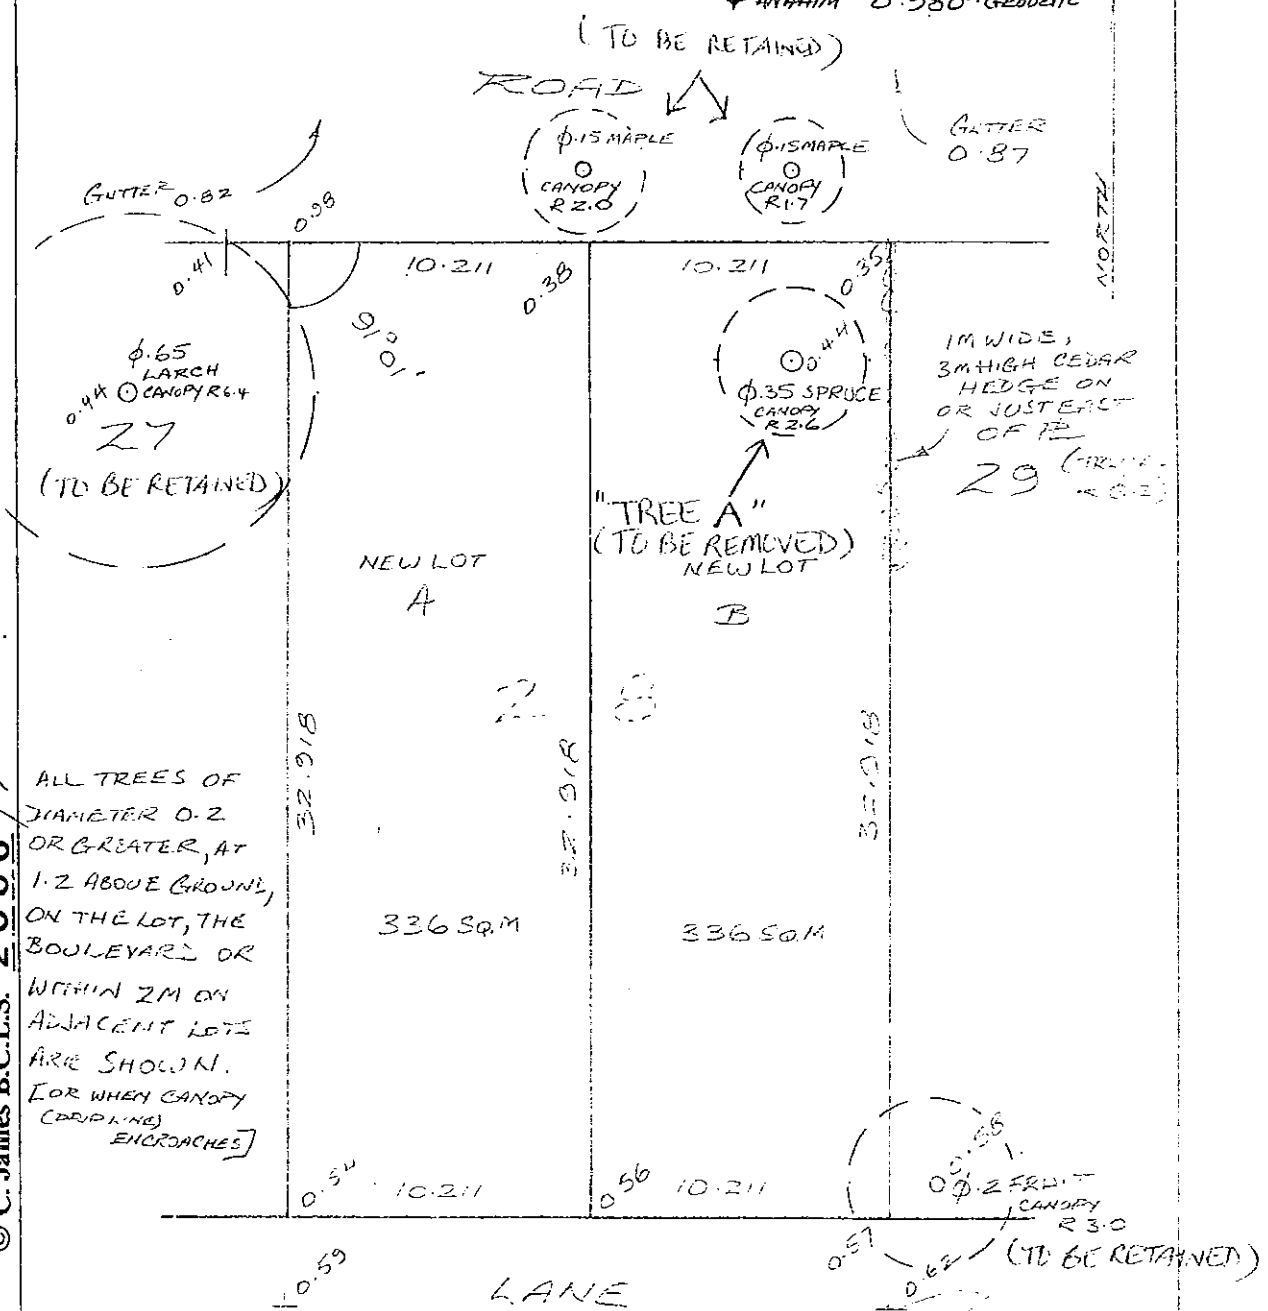 ANAHIM 0.980 GEODETIC
(TO BE RETAINED)
ROAD
φ.15 MAPLE
CANOPY
R 2.0
φ.15 MAPLE
CANOPY
R 1.7
GUTTER
0.87
GUTTER 0.82
0.98
NORTH
0.41
10.211
0.38
10.211
0.35
91°01'
φ.65
LARCH
0.94
CANOPY R6.4
27
(TO BE RETAINED)
0.44
φ.35 SPRUCE
CANOPY
R 2.6
1M WIDE,
3M HIGH CEDAR
HEDGE ON
OR JUST EAST
OF PL
29
"TREE A"
(TO BE REMOVED)
NEW LOT
A
NEW LOT
B
28
32.918
32.918
32.918
ALL TREES OF
DIAMETER 0.2
OR GREATER, AT
1.2 ABOVE GROUND,
ON THE LOT, THE
BOULEVARD OR
WITHIN 2M ON
ADJACENT LOTS
ARE SHOWN.
[OR WHEN CANOPY
(DRIPLINE)
ENCROACHES]
336 SQ.M
336 SQ.M
© C. James B.C.L.S.
0.54
10.211
0.56
10.211
0.58
φ.2 FRUIT
CANOPY
R 3.0
(TO BE RETAINED)
0.57
0.62
0.59
LANE